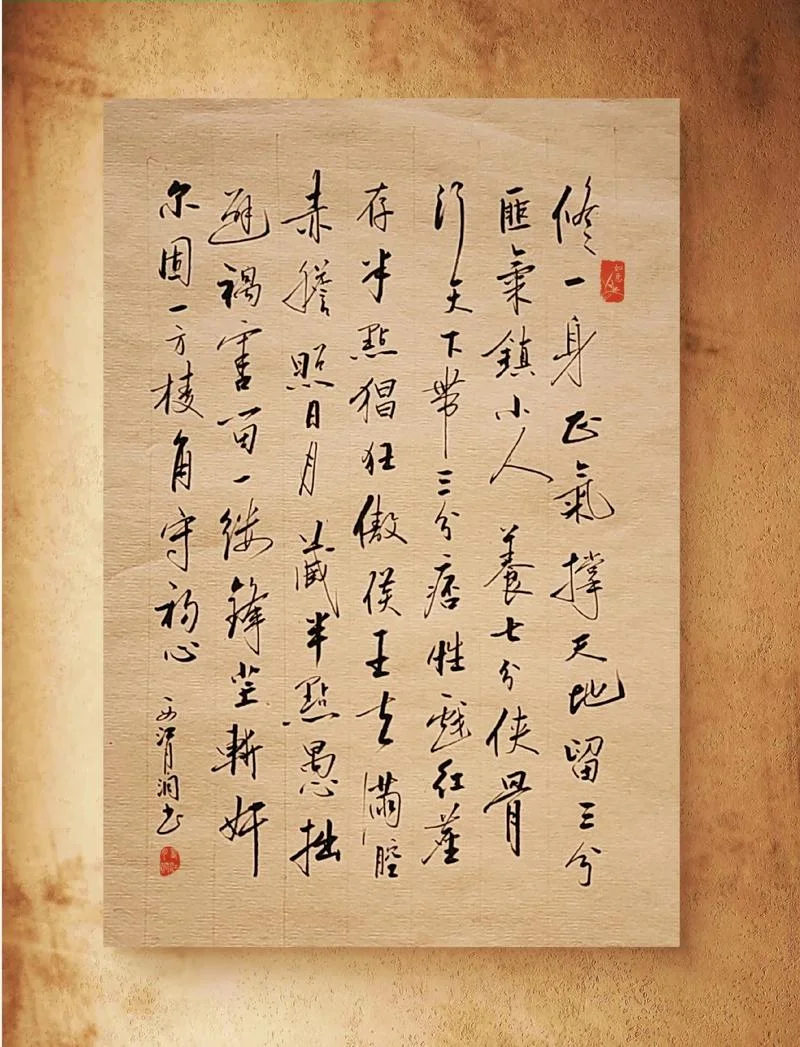 修一身正氣撐天地留三分
匪氣鎮小人養七分俠骨
行天下帶三分痞性戲红塵
存半點猖狂傲侯王去滿腔
赤膽照日月藏半點愚拙
避禍害留一缕鋒芒斬奸
尔固一方棱角守初心
书